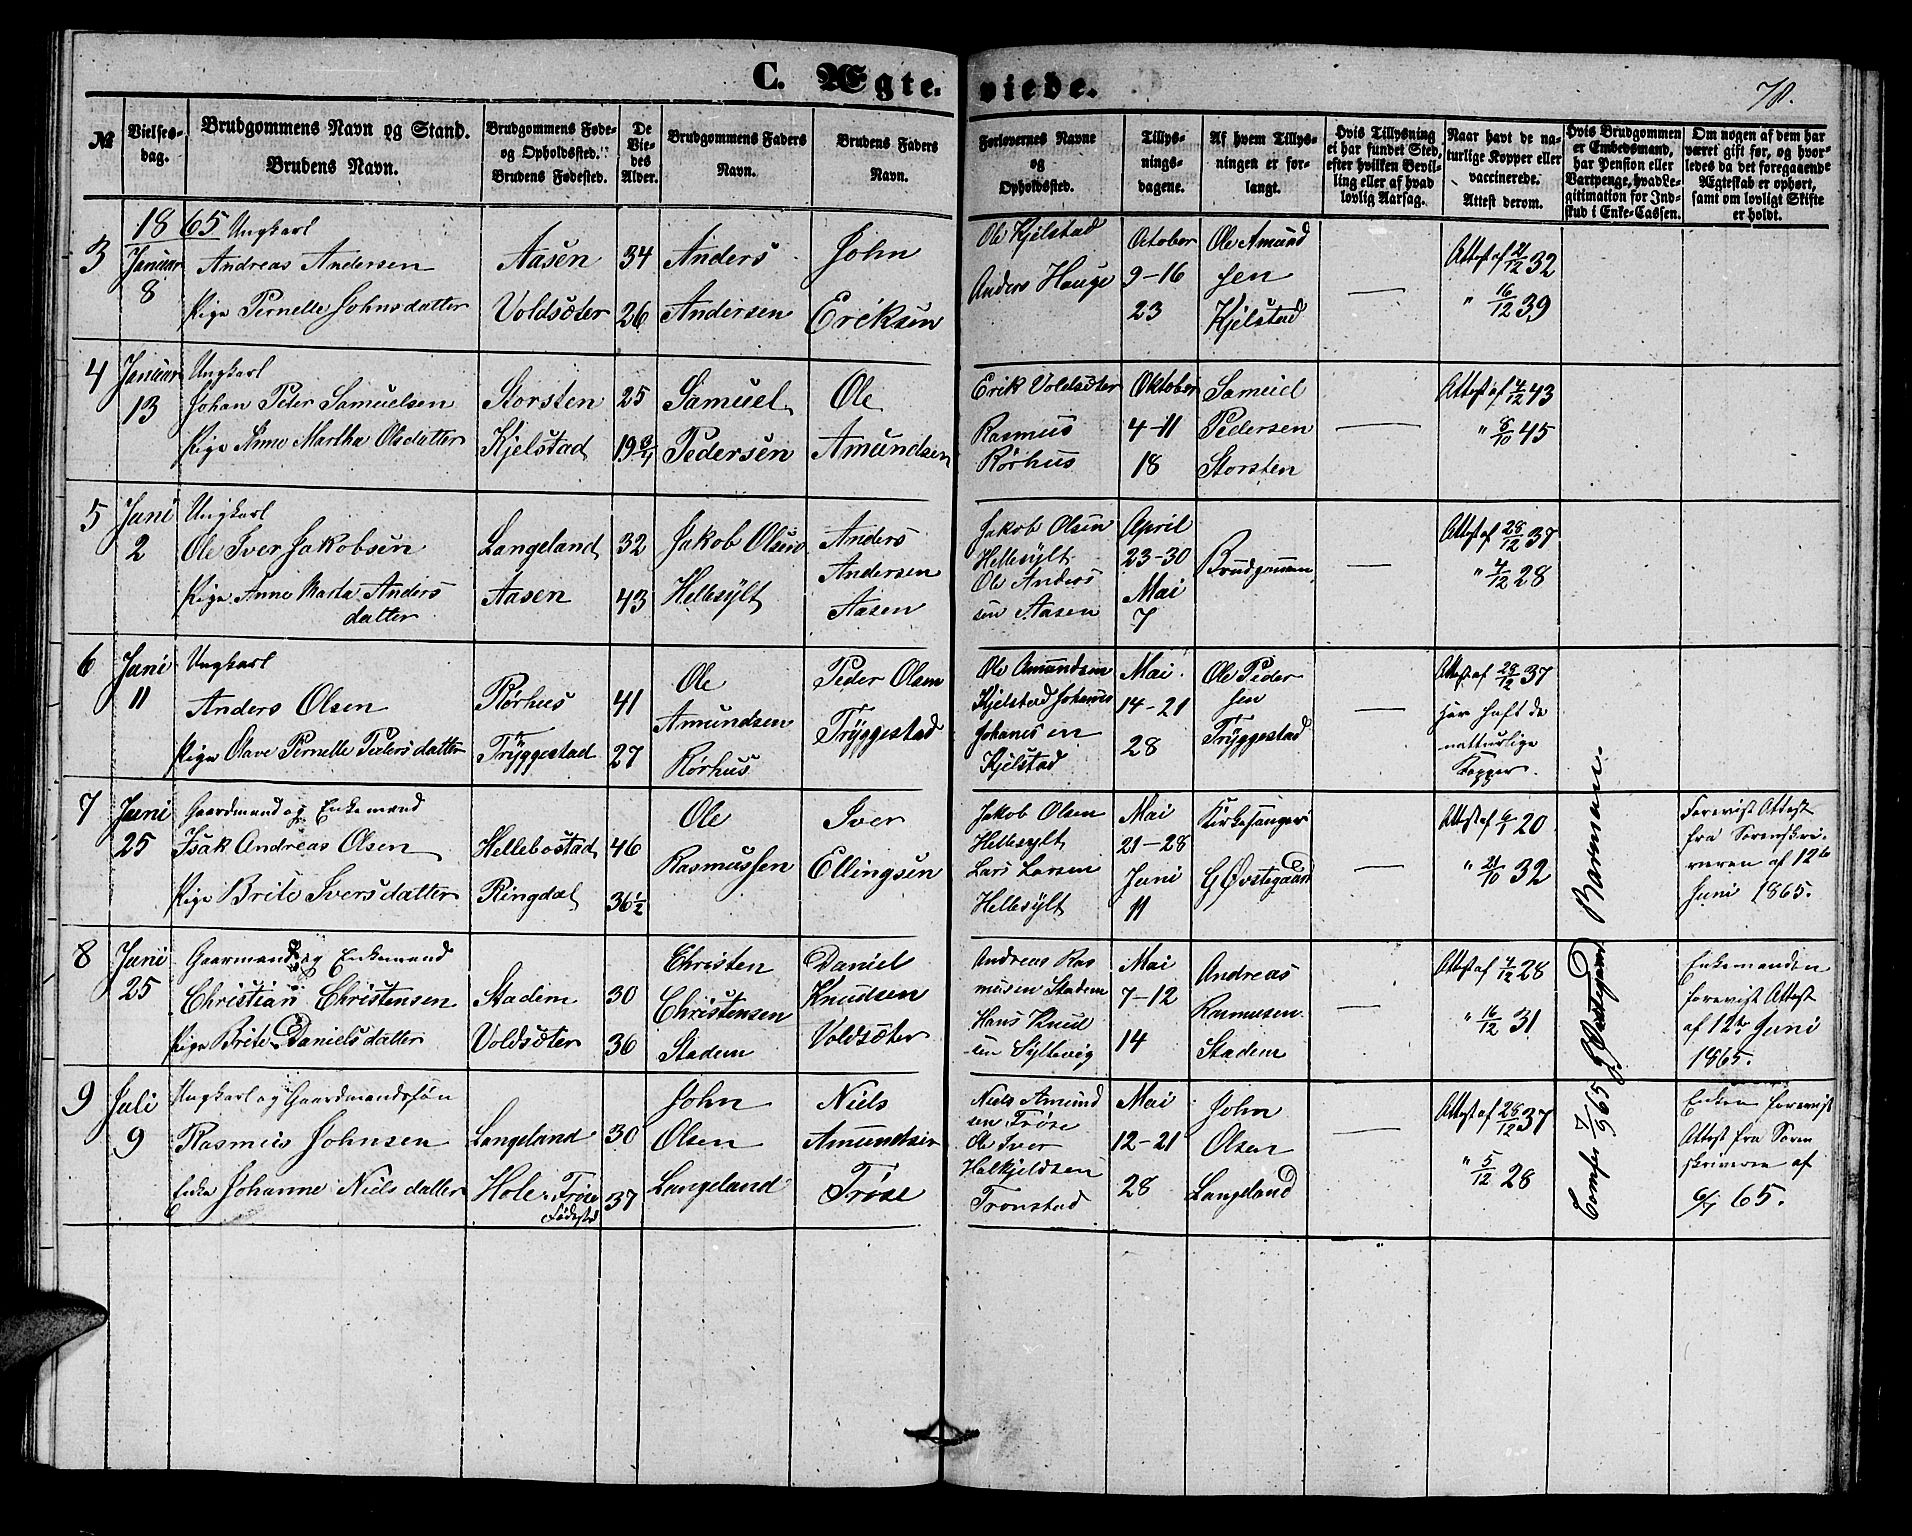 C. Ægte- viede.
78.
№
Vielses-
dag.
Brudgommens Navn og Stand.
Brudens Navn.
Brudgommens Føde-
og Opholdssted.
Brudens Fødested.
De
Vie-
des
Alder.
Brudgommens Faders
Navn.
Brudens Faders
Navn.
Forlovernes Navne
og
Opholdssted.
Tillys-
nings-
dagene.
Af hvem Tillys-
ningen er for-
langt.
Hvis Tillysning
ei har fundet Sted,
efter hvilken Bevil-
ling eller af hvad
lovlig Aarsag.
Naar havt de na-
turlige Kopper eller
vaccinerede.
Attest derom.
Hvis Brudgommen
er Embedsmand,
har Pension eller
Vartpenge, hvad Le-
gitimation for Ind-
skud i Enke-Cassen.
Om nogen af dem har
været gift før, og hvor-
ledes da det foregaaende
Ægteskab er ophørt,
samt om lovligt Skifte
er holdt.
1865
3
Januar
8
Ungkarl
Andreas Andersen
Pige Pernelle Johnsdatter
Aasen
Voldsæter
34
26
Anders
Andersen
John
Eriksen
Ole Kjelstad
Anders Hauge
October
9-16
23
Ole Amund
sen
Kjelstad
—
Attest af 21/12 32
" 16/12 39
4
Januar
13
Ungkarl
Johan Peter Samuelsen
Pige Anne Martha Olsdatter
Storsten
Kjelstad
25
19
Samuel
Pedersen
Ole
Amundsen
Erik Voldsæter
Rasmus
Rørhus
Oktober
4-11
18
Samuel
Pedersen
Storsten
—
Attest af 4/12 43
" 8/10 45
5
Juni
2
Ungkarl
Ole Iver Jakobsen
Pige Anne Marta Anders
datter
Langeland
Aasen
32
43
Jakob Olsen
Hellesylt
Anders
Andersen
Aasen
Jakob Olsen
Hellesylt
Ole Anders
sen Aasen
April
23-30
Mai
7
Brudgommen
—
Attest af 28/12 37
" 4/12 28
6
Juni
11
Ungkarl
Anders Olsen
Pige Olave Pernelle Pedersdatter
Rørhus
Tryggestad
41
27
Ole
Amundsen
Rørhus
Peder Olsen
Tryggestad
Ole Amundsen
Kjelstad Johannes
Johannesen
Kjelstad
Mai
14-21
28
Ole Peder
sen
Tryggestad
—
Attest af 28/12 37
har haft de
natturlige
Kopper.
7
Juni
25
Gaardmand og Enkemand
Isak Andreas Olsen
Pige Brite Iversdatter
Hellebostad
Ringdal
46
36½
Ole
Rasmussen
Iver
Ellingsen
Jakob Olsen
Hellesylt
Lars Larsen
Hellesylt
Mai
21-28
Juni
11
Kirkesanger
G Østegaard
—
Attest af 6/1 20
" 21/10 32
Forevist Attest
fra Sorenskri-
veren af 12te
Juni 1865.
8
Juni
25
Gaarmand og Enkemand
Christian Christensen
Pige Brite Danielsdatter
Stadem
Voldsæter
30
36
Christen
Christensen
Stadem
Daniel
Knudsen
Voldsæter
Andreas Ras
musen Stadem
Hans Knud
sen Syltevig
Mai
7-12
14
Andreas
Rasmusen
Stadem
—
Attest af 4/12 28
" 16/12 31
Enkemanden
forevist Attest
af 12te Juni
1865.
9
Juli
9
Ungkarl og Gaardmandssøn
Rasmus Johnsen
Enke Johanne Nielsdatter
Langeland
Hole Trøse
Fødested
30
37
John
Olsen
Langeland
Niels
Amundsen
Trøse
Niels Amund
sen Trøse
Ole Iver
Halkjeldsen
Tronstad
Mai
12-21
28
John
Olsen
Langeland
—
Attest af 28/12 37
" 5/12 28
Enken forevist
Attest fra Soren
skriveren af
65.